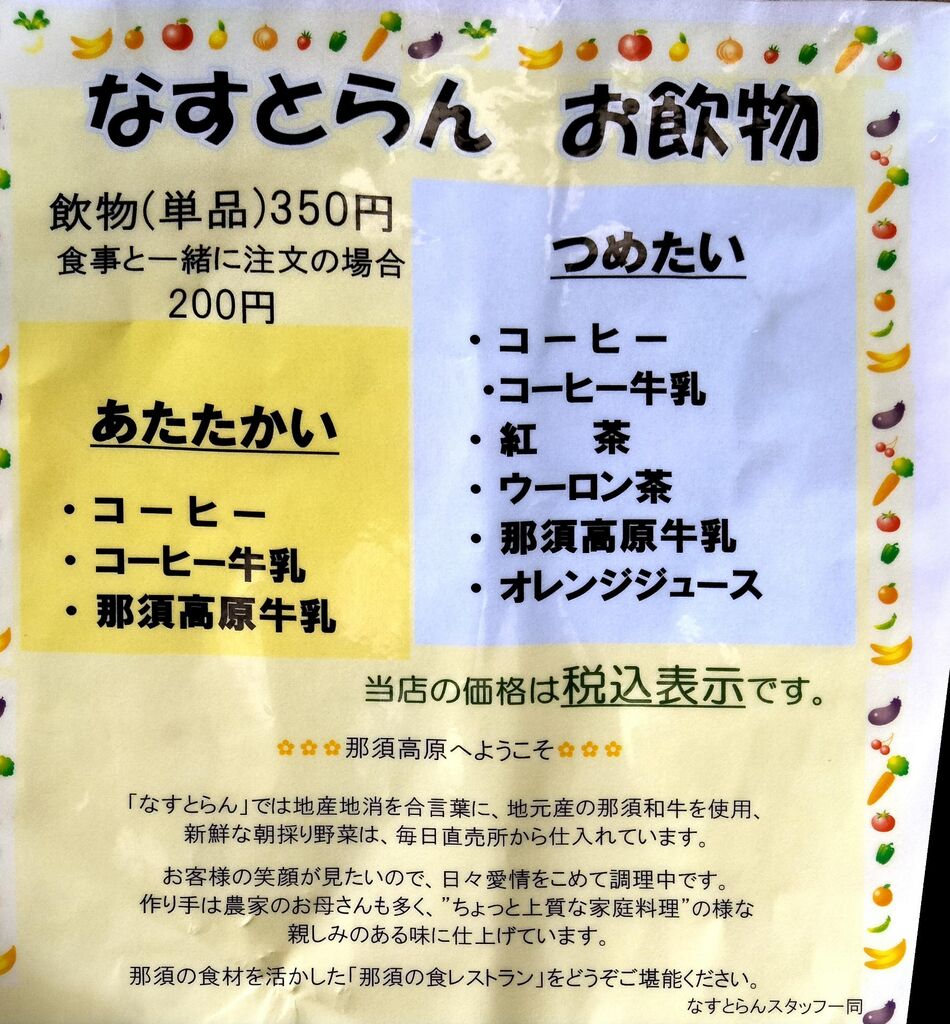 なすとらん お飲物
飲物(単品)350円
食事と一緒に注文の場合
200円
あたたかい
・コーヒー
・コーヒー牛乳
・那須高原牛乳
つめたい
・コーヒー
・コーヒー牛乳
・紅 茶
・ウーロン茶
・那須高原牛乳
・オレンジジュース
当店の価格は税込表示です。
✿✿✿那須高原へようこそ✿✿✿
「なすとらん」では地産地消を合言葉に、地元産の那須和牛を使用、
新鮮な朝採り野菜は、毎日直売所から仕入れています。
お客様の笑顔が見たいので、日々愛情をこめて調理中です。
作り手は農家のお母さんも多く、"ちょっと上質な家庭料理"の様な
親しみのある味に仕上げています。
那須の食材を活かした「那須の食レストラン」をどうぞご堪能ください。
なすとらんスタッフ一同